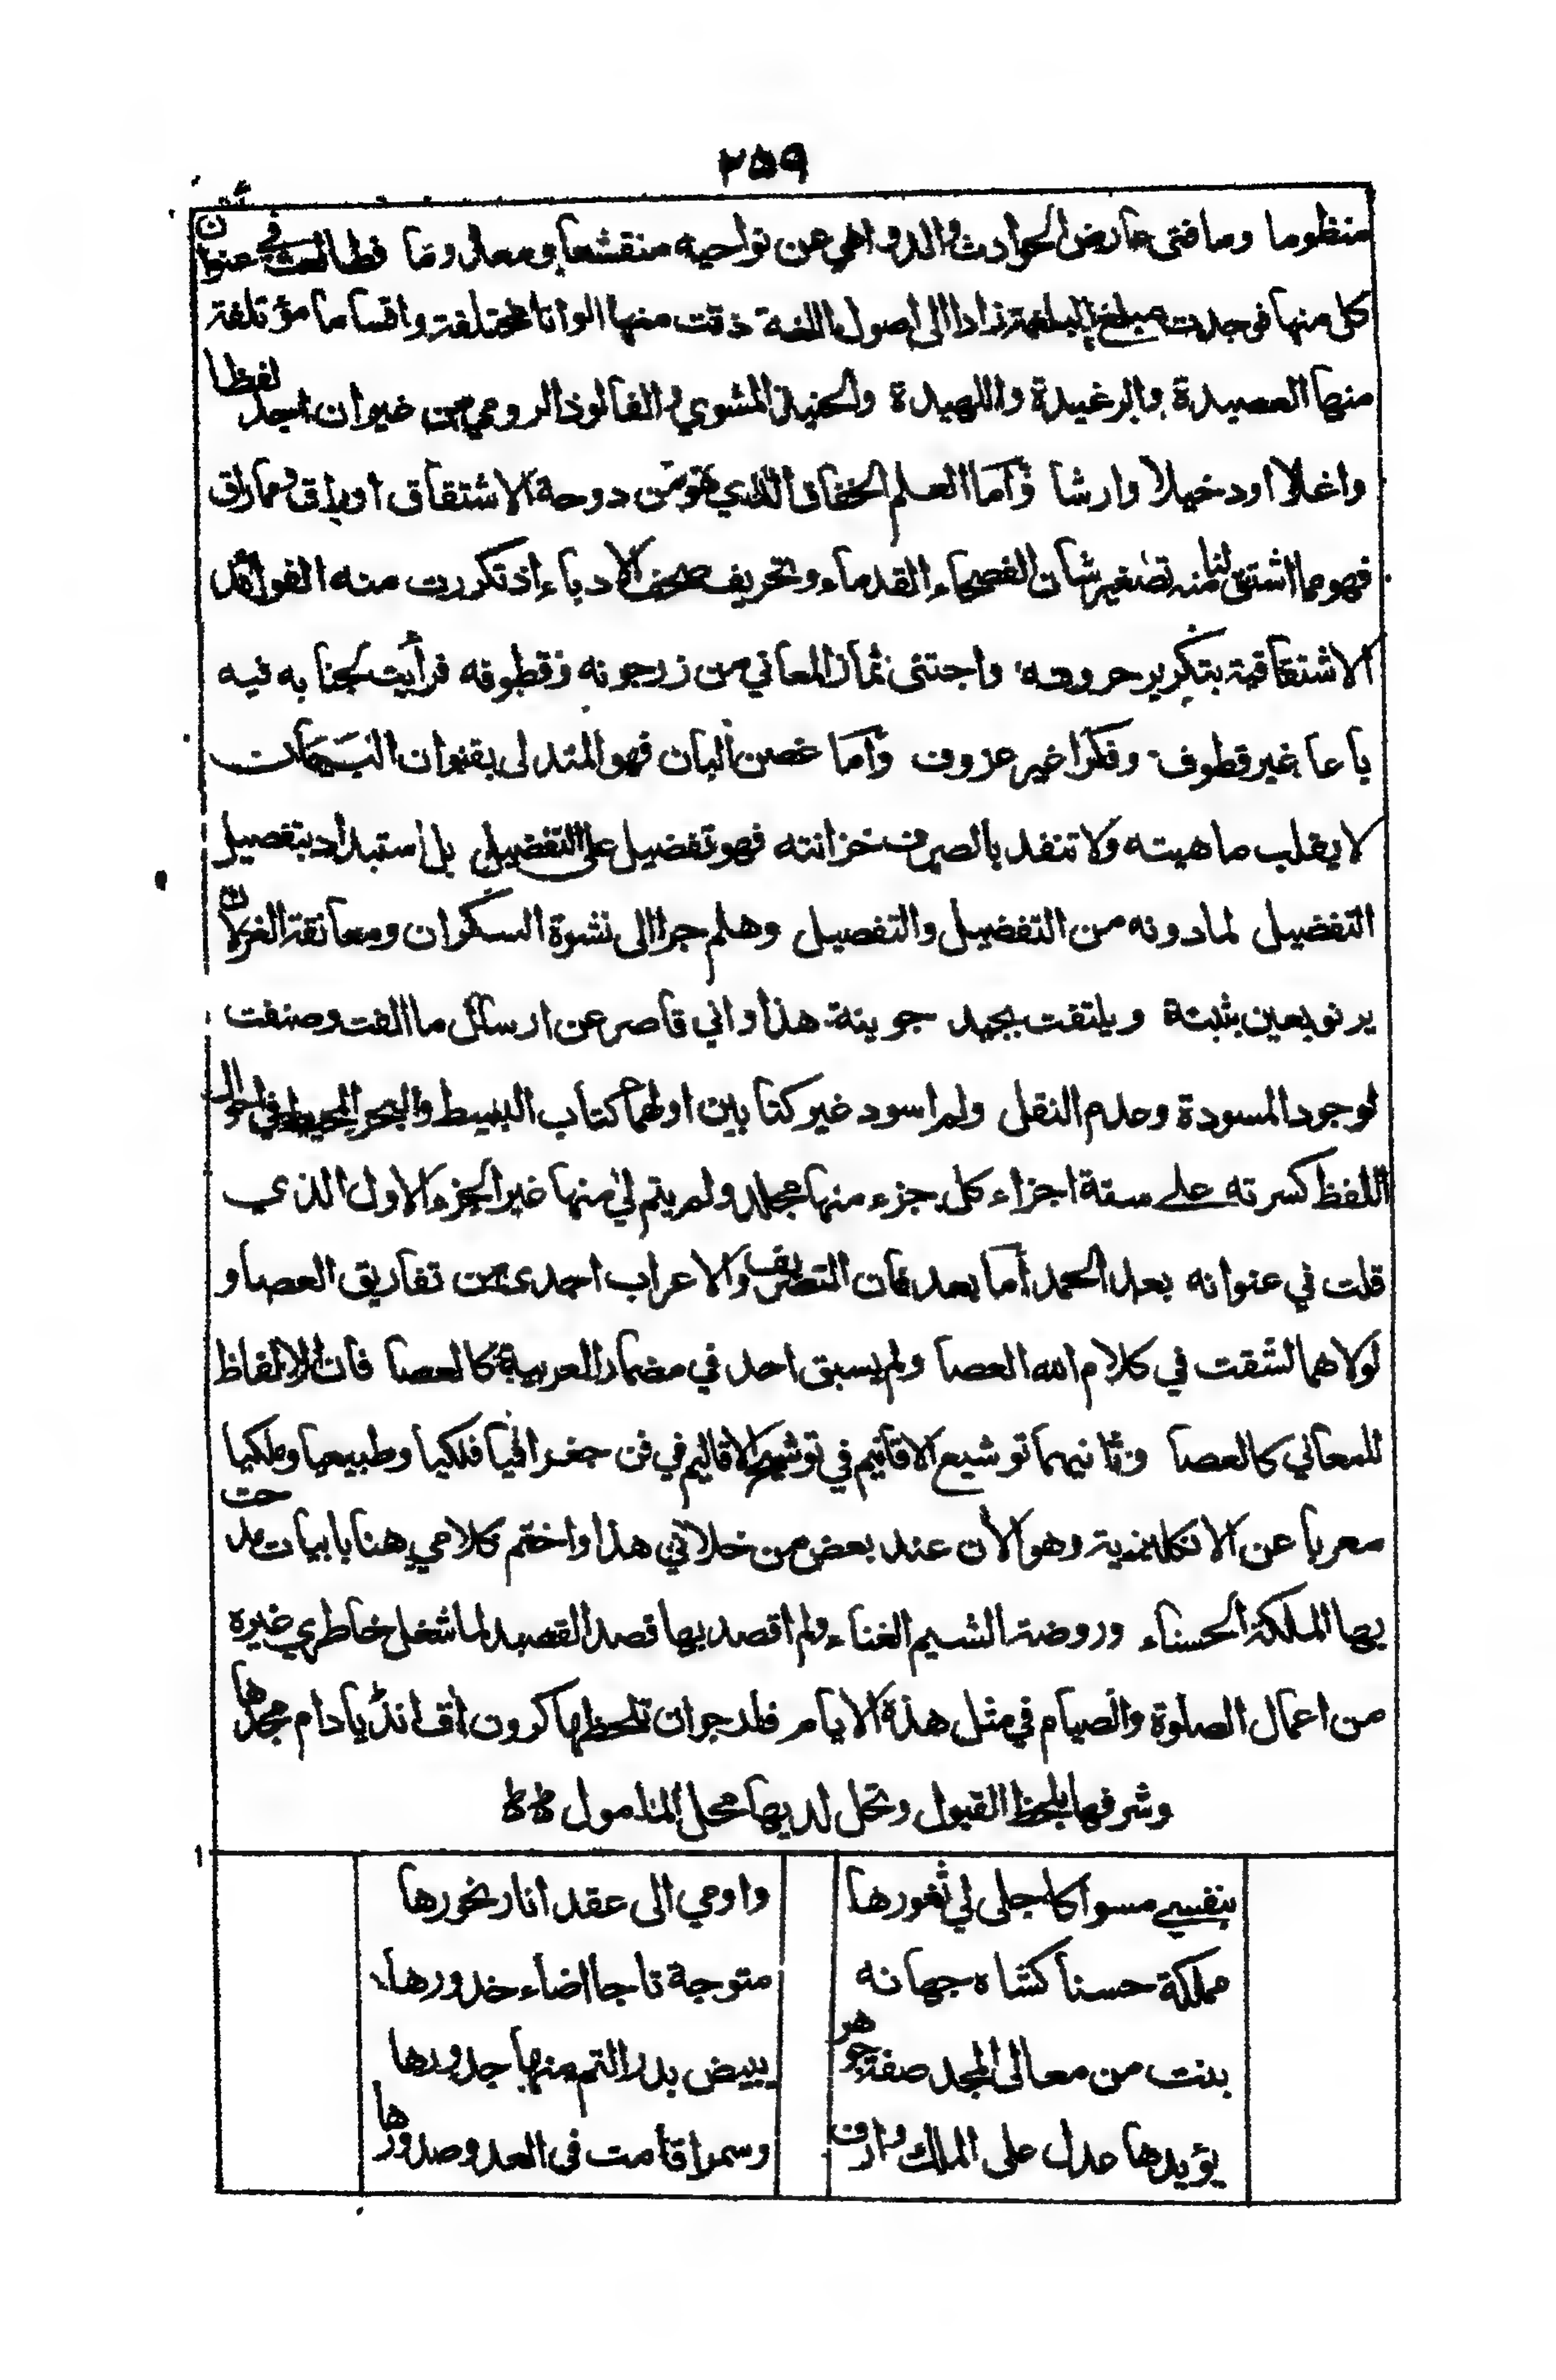 ٢٥٩
منظوما وما فتى عارض الحوادث والدواهي عن نواحيه منقشعا ومعالي وما فطالعت في عنوان
كل منها فوجدت مبلغ البلغة زادا الى اصول اللغة ذقت منها الوانا مختلفة واقساما مؤتلفة
منها العصيدة والرغيدة واللهيدة والحنيذ المشوي والفالوذ الرومي من غير ان اجد لفظا
واغلا او دخيلا وارشا وأما العلم الخفاق الذي هو من دوحة الاشتقاق اوراق وما راق
فهو مما اشتق لنا منه تصغير شان الفصحاء القدماء وتحريف صحف الادباء إذ تكررت منه الفوائد
الاشتقاقية بتكرير حروفه واجتنى ثمار المعاني من زرجونه وقطوفه فرأيت لجنابه فيه
باعا غير قطوف وفكرا غير عزوف وأما غصن البان فهو المتدلى بقنوان النسمات
لا يقلب ماهيته ولا تنفد بالصرف خزانته فهو تفضيل على التفضيل بل استبداد بتفصيل
التفضيل لما دونه من التفضيل والتفصيل وهلم جرا الى نشوة السكران ومعانقة الغزلان
يرنو بعين بثينة ويلتفت بجيد جوينة هذا واني قاصر عن ارسال ما الفت وصنفت
لوجود المسودة وعدم النقل ولم اسود غير كتابين اولهما كتاب البسيط والبحر المحيط في احوال
اللفظ كسرته على ستة اجزاء كل جزء منها مجلد ولم يتم لي منها غير الجزء الاول الذي
قلت في عنوانه بعد الحمد أما بعد فان التصريف والاعراب احدى من تفاريق العصا و
لولاهما لشقت في كلام الله العصا ولم يسبق احد في مضمار العربية كالعصا فان الالفاظ
للمعاني كالعصا وثانيهما توشيع الاقانيم في توشيح الاقاليم في فن جغرافيا فلكيا وطبيعيا وملكيا
معربا عن الانكليزية وهو الأن عند بعض من خلاني هذا واختم كلامي هنا بابيات مدحت
بها الملكة الحسناء وروضة الشيم الغناء ولم اقصد بها قصد القصيد لما شغل خاطري غيره
من اعمال الصلوة والصيام في مثل هذة الايام فلدجوان تلحظها كرون أف انڈيا دام مجدها
وشرفها بلحظ القبول وتحل لديها محل المامول
بنفسي مسواكا جلى لي ثغورها واومي الى عقد انار نحورها
مملكة حسنا كشاه جهانه متوجة تاجا اضاء خدورها
بنت من معالى المجد صفة جوهر ببيض بدر التم منها جدورها
يؤيدها عدل على الملك وارف وسمر اقامت فى العدو صدورها